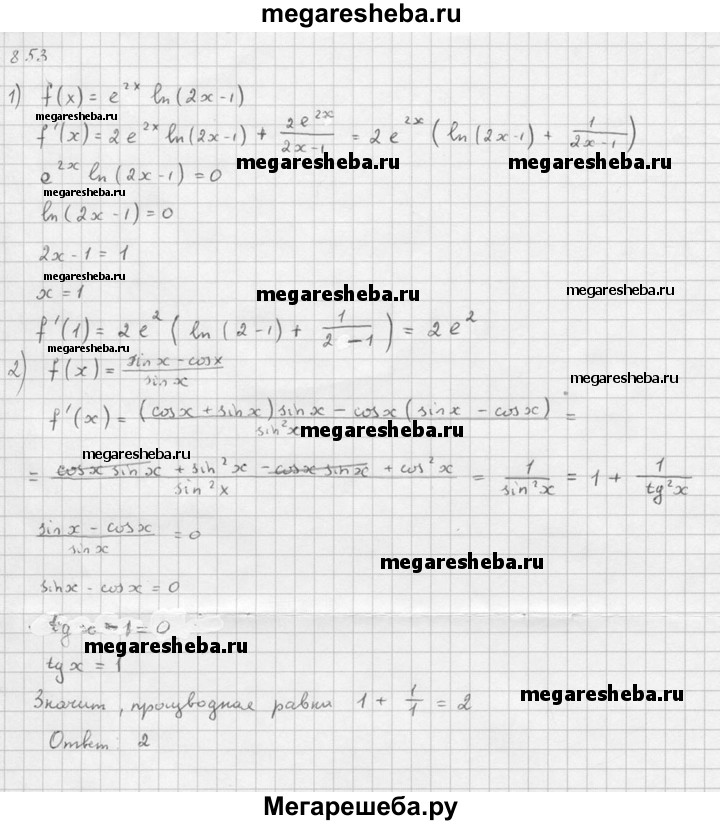 megaresheba.ru
8 5.3
1) f(x) = e^{2x} ln(2x-1)
megaresheba.ru
f'(x) = 2e^{2x} ln(2x-1) + \frac{2e^{2x}}{2x-1} = 2e^{2x} ( ln(2x-1) + \frac{1}{2x-1} )
megaresheba.ru megaresheba.ru
e^{2x} ln(2x-1) = 0
megaresheba.ru
ln(2x-1) = 0
2x-1 = 1
megaresheba.ru
x = 1
megaresheba.ru megaresheba.ru
f'(1) = 2e^2 ( ln(2-1) + \frac{1}{2-1} ) = 2e^2
megaresheba.ru
2) f(x) = \frac{sin x - cos x}{sin x}
megaresheba.ru
f'(x) = \frac{(cos x + sin x) sin x - cos x (sin x - cos x)}{sin^2 x} =
megaresheba.ru
megaresheba.ru
= \frac{cos x sin x + sin^2 x - cos x sin x + cos^2 x}{sin^2 x} = \frac{1}{sin^2 x} = 1 + \frac{1}{tg^2 x}
\frac{sin x - cos x}{sin x} = 0
megaresheba.ru
sin x - cos x = 0
tg x - 1 = 0
megaresheba.ru
tg x = 1
megaresheba.ru
Значит, производная равна 1 + \frac{1}{1} = 2
Ответ: 2
Мегарешеба.ру